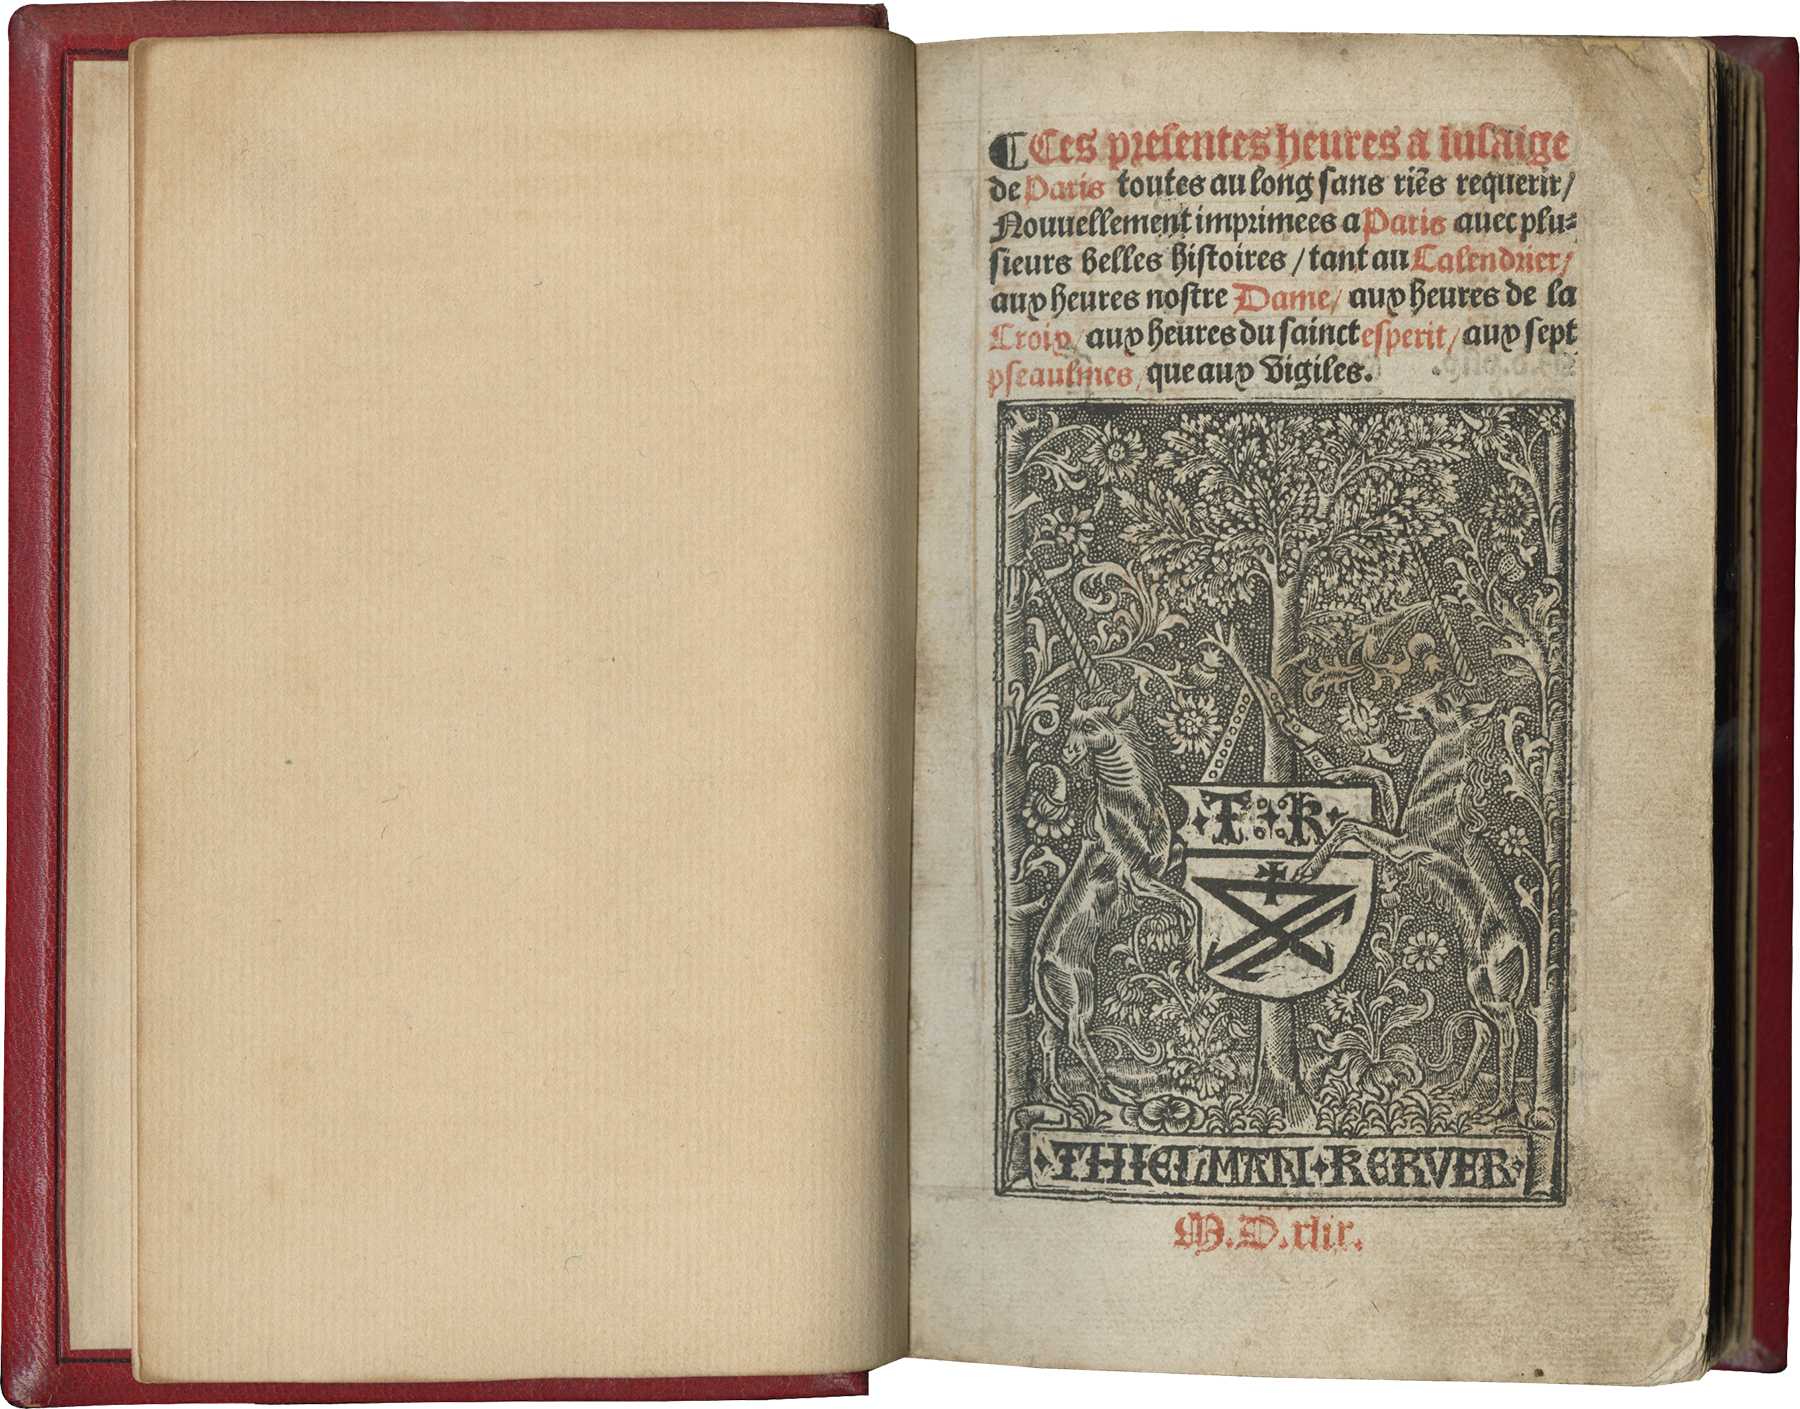 Ces presentes heures a lusaige
de Paris toutes au long sans riēs requerir/
Nouuellement imprimees a Paris auec plu-
sieurs belles histoires/tant au Calendrier/
aux heures nostre Dame/ aux heures de la
Croix/ aux heures du sainct esperit/ aux sept
pseaulmes/ que aux Vigiles.
·T·K·
·THIELMAN·KERVER·
M.D.xlix.